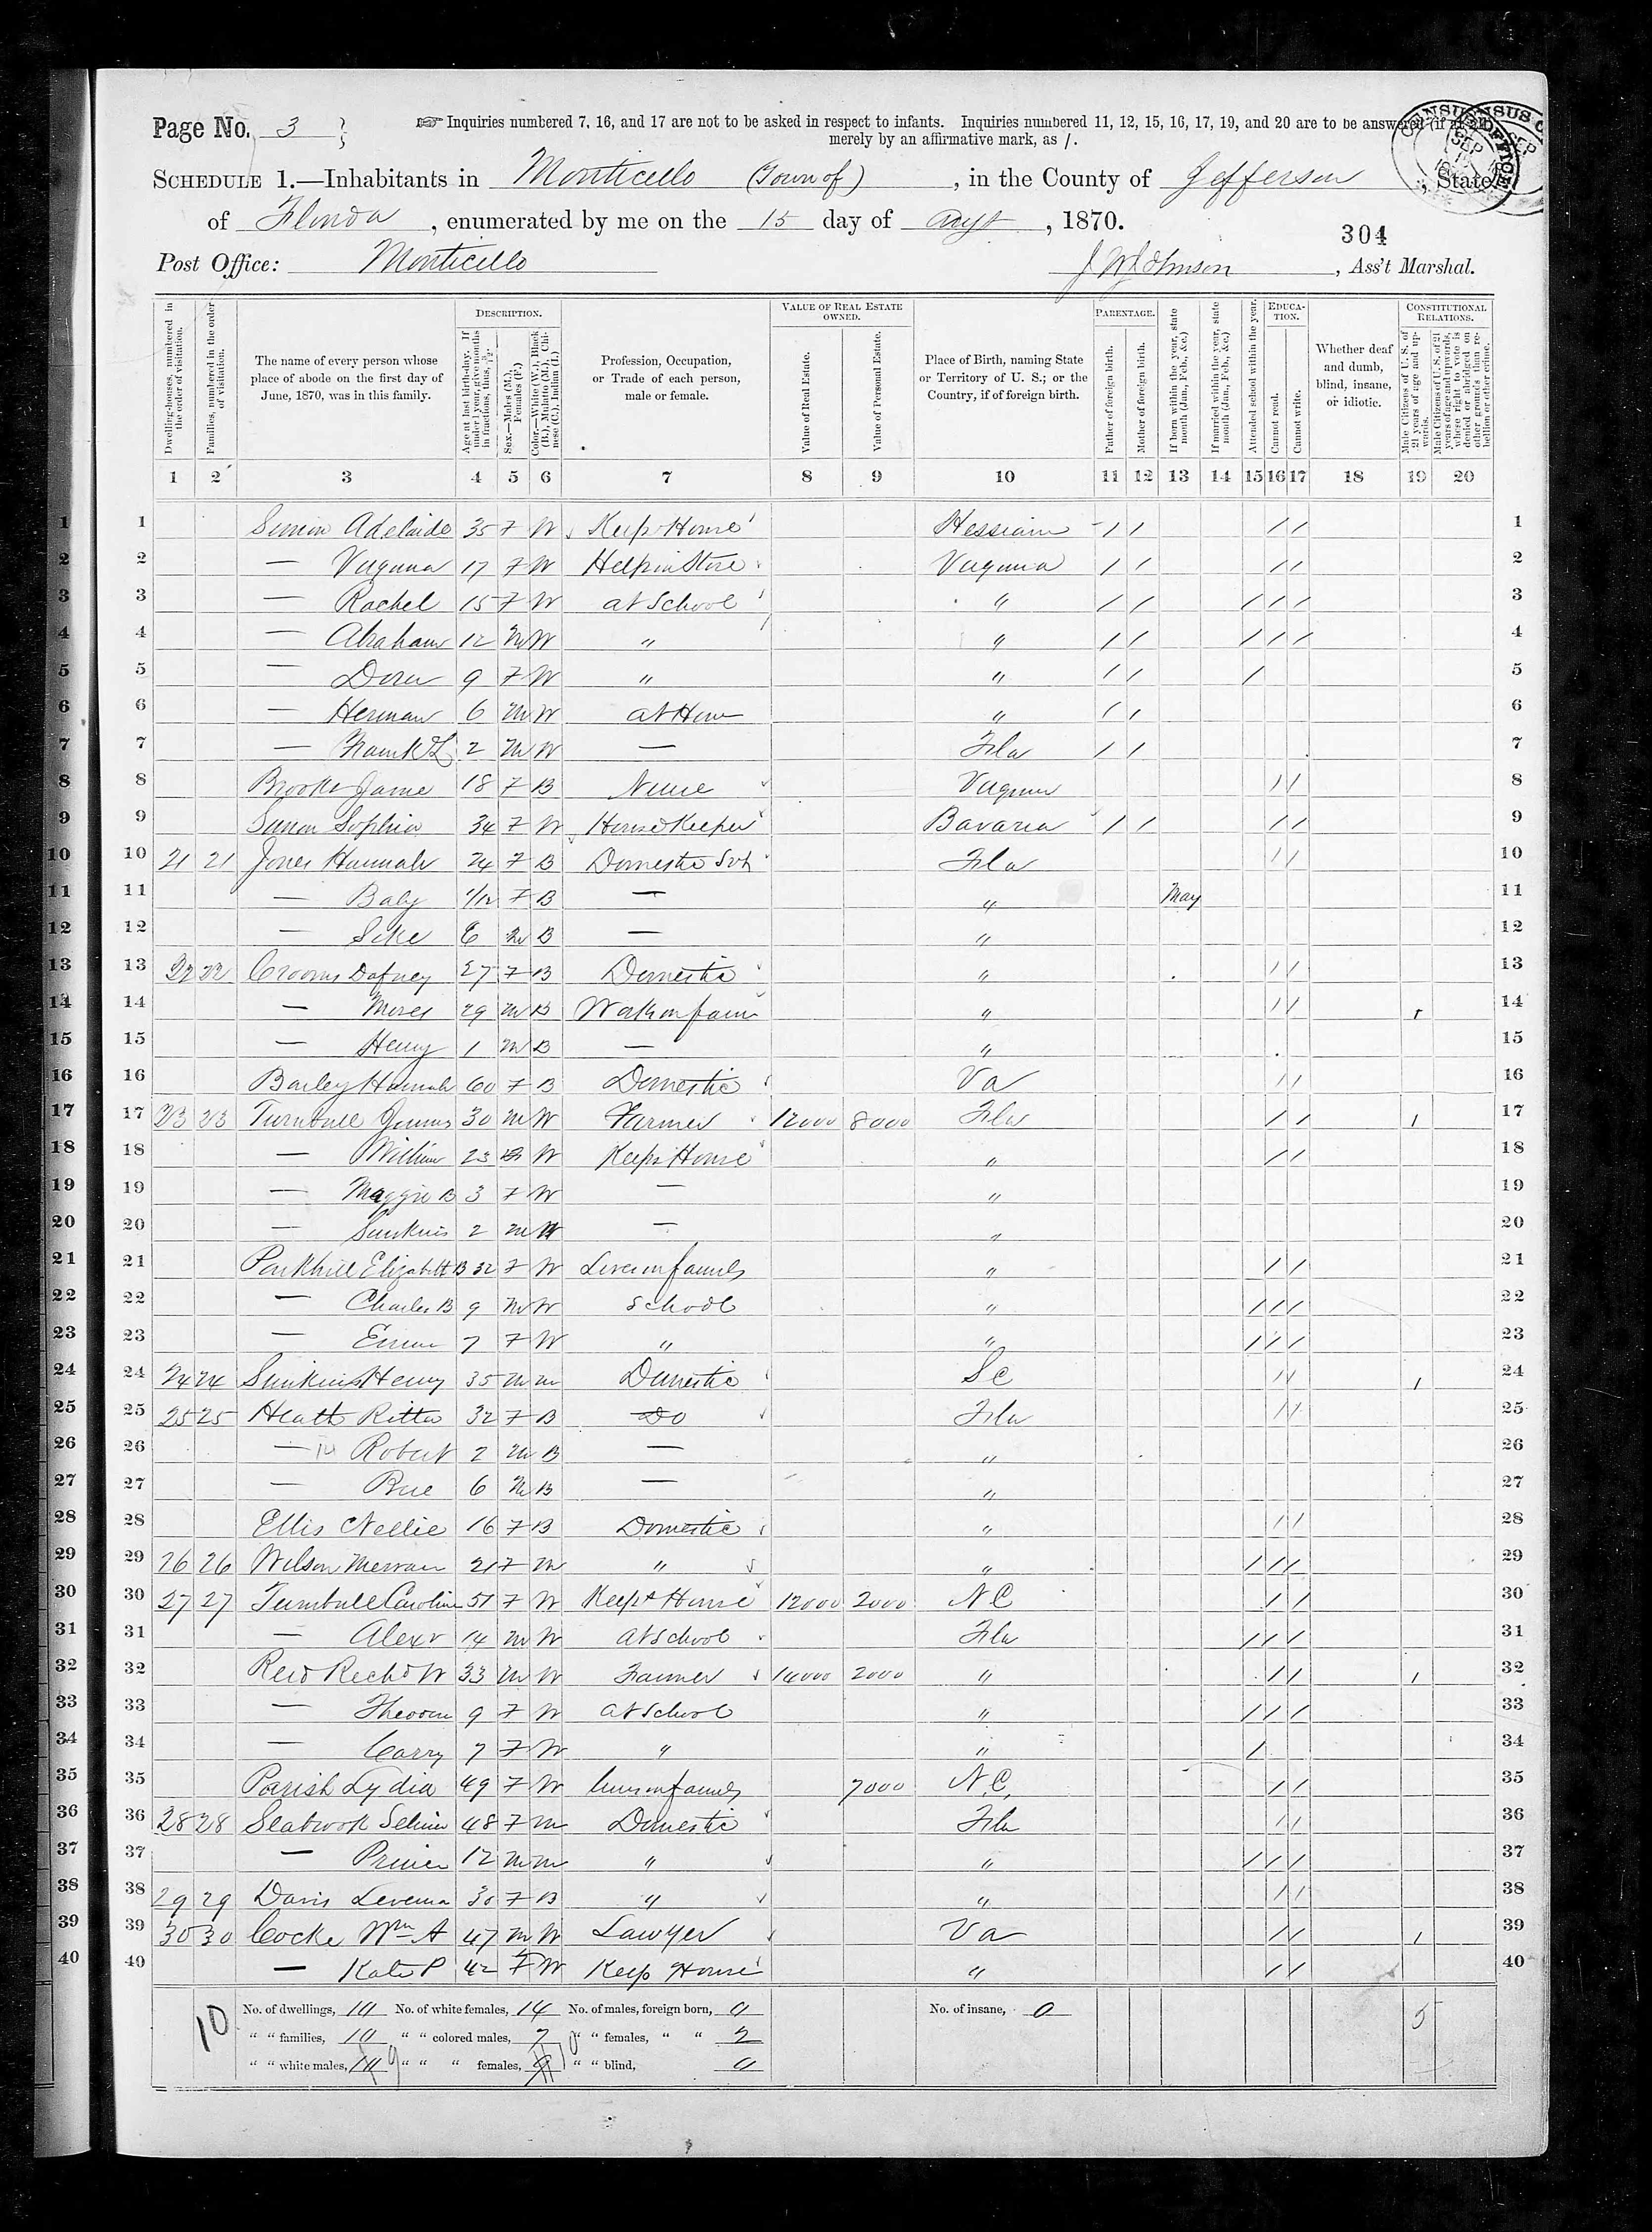 Page No. 3
☞ Inquiries numbered 7, 16, and 17 are not to be asked in respect to infants. Inquiries numbered 11, 12, 15, 16, 17, 19, and 20 are to be answered (if at all)
merely by an affirmative mark, as /.
SCHEDULE 1.—Inhabitants in Monticello (Town of), in the County of Jefferson, State
of Florida, enumerated by me on the 15 day of Augt, 1870.
304
Post Office: Monticello
J W Johnson, Ass't Marshal.
Dwelling-houses, numbered in the order of visitation.
Families, numbered in the order of visitation.
The name of every person whose place of abode on the first day of June, 1870, was in this family.
DESCRIPTION.
Age at last birth-day. If under 1 year, give months in fractions, thus, 3/12.
Sex.—Males (M.), Females (F.)
Color.—White (W.), Black (B.), Mulatto (M.), Chinese (C.), Indian (I.)
Profession, Occupation, or Trade of each person, male or female.
VALUE OF REAL ESTATE OWNED.
Value of Real Estate.
Value of Personal Estate.
Place of Birth, naming State or Territory of U. S.; or the Country, if of foreign birth.
PARENTAGE.
Father of foreign birth.
Mother of foreign birth.
If born within the year, state month (Jan., Feb., &c.)
If married within the year, state month (Jan., Feb., &c.)
Attended school within the year.
EDUCATION.
Cannot read.
Cannot write.
Whether deaf and dumb, blind, insane, or idiotic.
CONSTITUTIONAL RELATIONS.
Male Citizens of U. S. of 21 years of age and upwards.
Male Citizens of U. S. of 21 years of age and upwards, whose right to vote is denied or abridged on other grounds than rebellion or other crime.
1 2 3 4 5 6 7 8 9 10 11 12 13 14 15 16 17 18 19 20
1 Simon Adelaide 35 F W Keeps House / / / / 1
2 — Virginia 17 F W Help in Store Virginia / / / / 2
3 — Rachel 15 F W at School " / / / / / 3
4 — Abraham 12 M W " " / / / / / 4
5 — Dora 9 F W " " / / / 5
6 — Herman 6 M W at Home " / / 6
7 — Frank L 2 M W — Fla / / 7
8 Brooks Jane 18 F B Nurse Virginia / / 8
9 Simon Sophia 34 F W House Keeper Bavaria / / / / 9
10 21 21 Jones Hannah 24 F B Domestic Svt Fla / / 10
11 — Baby 1/12 F B — " May 11
12 — 6 M B — " 12
13 22 22 Crooms Dafney 27 F B Domestic " / / 13
14 — Moses 29 M B Works on farm " / / / 14
15 — Henry 1 M B — " 15
16 Bailey Hannah 60 F B Domestic Va / / 16
17 23 23 Turnbull Junius 30 M W Farmer 12000 8000 Fla / / / 17
18 — 23 W Keeps House " / / 18
19 — Maggie B 3 F W — " 19
20 — 2 M W — " 20
21 Parkhill Elizabeth B 32 F W Lives in family " / / 21
22 — Charles B 9 M W School " / / / 22
23 — Emma 7 F W " " / / / 23
24 24 24 Henry 35 M M Domestic SC / / / 24
25 25 25 Heath Ritta 32 F B Do Fla / / 25
26 — Robert 2 M B — " 26
27 — 6 M B — " 27
28 Ellis Nellie 16 F B Domestic " / / 28
29 26 26 Wilson 21 F M " " / / / 29
30 27 27 Turnbull Caroline 51 F W Keeps House 12000 2000 N C / / 30
31 — Alexr 14 M W at School Fla / / / 31
32 Reid Richd W 33 M W Farmer 14000 2000 " / / / 32
33 — 9 F W at School " / / / 33
34 — Carry 7 F W " " / 34
35 Parish Lydia 49 F W Lives in family 7000 N.C. / / 35
36 28 28 Seabrook 48 F M Domestic Fla / / 36
37 — Prince 12 M M " " / / / 37
38 29 29 Davis 30 F B " " / / 38
39 30 30 Cocke Wm A 47 M W Lawyer Va / / / 39
40 — Kate P 42 F W Keep House " / / 40
10
No. of dwellings, 10 No. of white females, 14 No. of males, foreign born, 0 No. of insane, 0 5
" " families, 10 " " colored males, 7 " " females, " " 2
" " white males, " " " females, " " blind, 0